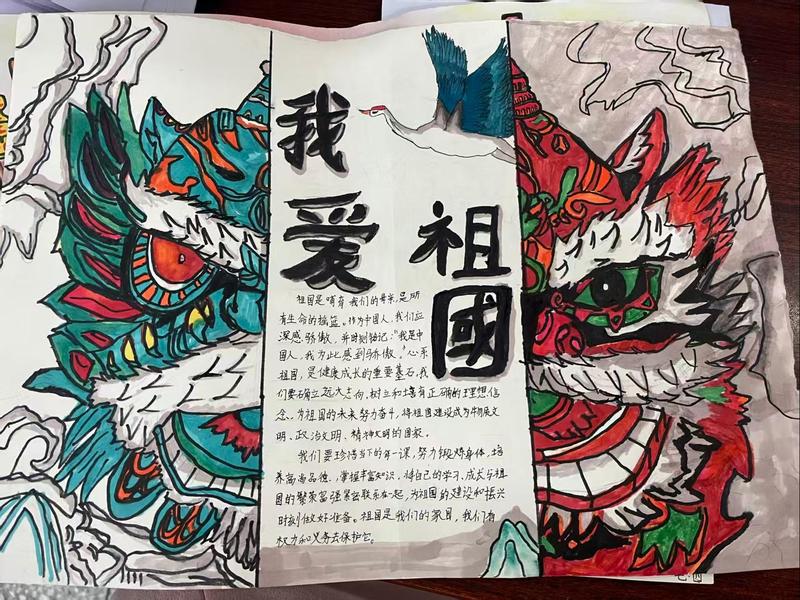 我爱
祖國
祖国是哺育我们的母亲,是所
有生命的摇篮。作为中国人,我们应
深感骄傲,并时刻铭记:"我是中
国人,我为此感到骄傲。"心系
祖国,是健康成长的重要基石,我
们要确立远大志向,树立和培育正确的理想信
念。为祖国的未来努力奋斗,将祖国建设成为物质文
明、政治文明、精神文明的国家。
我们要珍惜当下的每一课,努力锻炼身体,培
养高尚品德,掌握丰富知识,将自己的学习、成长与祖
国的繁荣富强紧密联系在一起,为祖国的建设和振兴
时刻做好准备。祖国是我们的家园,我们有
权力和义务去保护它。
七·四